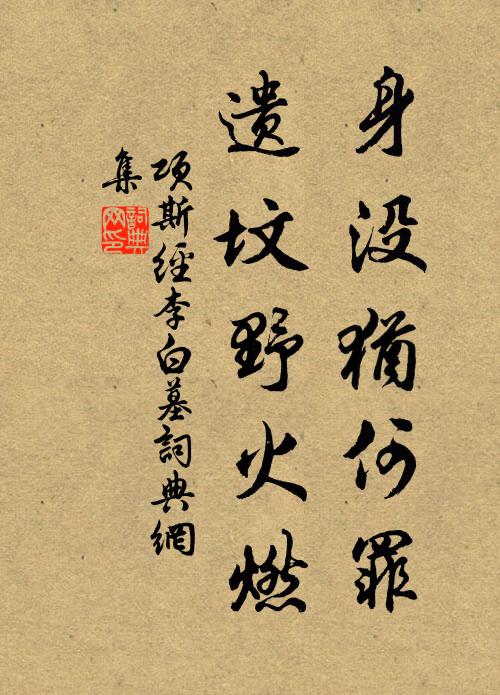 身没猶何罪
遗坟野火燃
項斯經李白墓詞典網
集
詞典网印